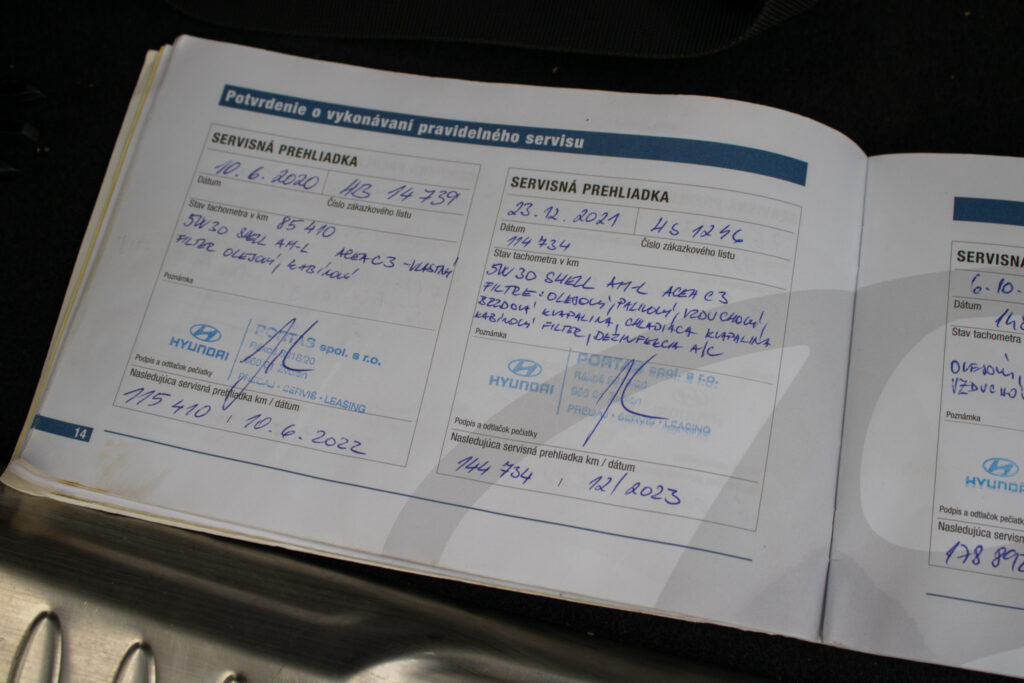 Potvrdenie o vykonávaní pravidelného servisu
SERVISNÁ PREHLIADKA
10. 6. 2020 HB 14 739
Dátum Číslo zákazkového listu
Stav tachometra v km 85 410
5W30 SHELL AM-L ACEA C3 - VLASTNÝ
FILTER OLEJOVÝ, KABÍNOVÝ
Poznámka
HYUNDAI
PORTAS spol. s r.o.
PREDAJ - SERVIS - LEASING
Podpis a odtlačok pečiatky
Nasledujúca servisná prehliadka km / dátum
115 410 , 10. 6. 2022
14
SERVISNÁ PREHLIADKA
23. 12. 2021 HS 1246
Dátum Číslo zákazkového listu
114 734
Stav tachometra v km
5W30 SHELL AM-L ACEA C3
FILTRE: OLEJOVÝ, PALIVOVÝ, VZDUCHOVÝ,
BRZDOVÁ KVAPALINA, CHLADIACA KVAPALINA
KABÍNOVÝ FILTER, DEZINFEKCIA A/C
Poznámka
HYUNDAI
PORTAS spol. s r.o.
PREDAJ - SERVIS - LEASING
Podpis a odtlačok pečiatky
Nasledujúca servisná prehliadka km / dátum
144 734 , 12/2023
SERVISNÁ
6. 10.
Dátum
Stav tachometra
OLEJOVÝ,
VZDUCHO
Poznámka
HYUNDAI
Podpis a odtlačok pečiatky
Nasledujúca servisn
178 892